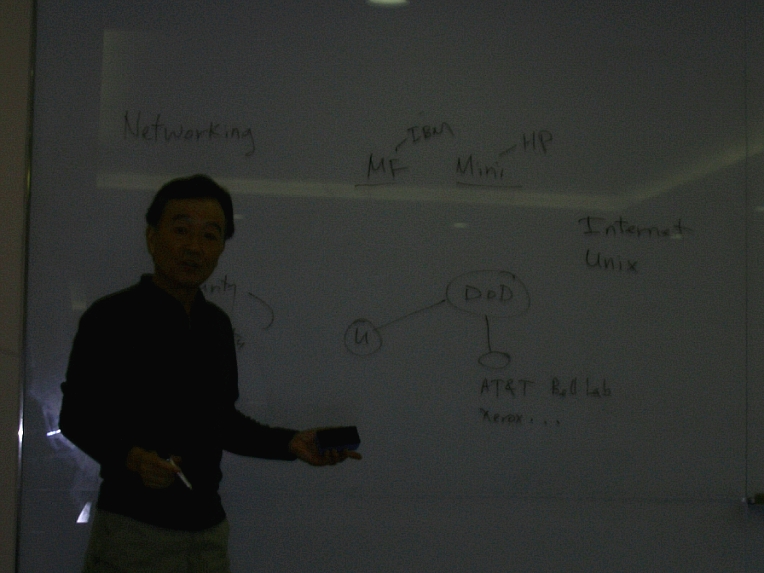 Networking
IBM
HP
MF Mini
Internet
Unix
DoD
U
AT&T Bell Lab
Xerox...